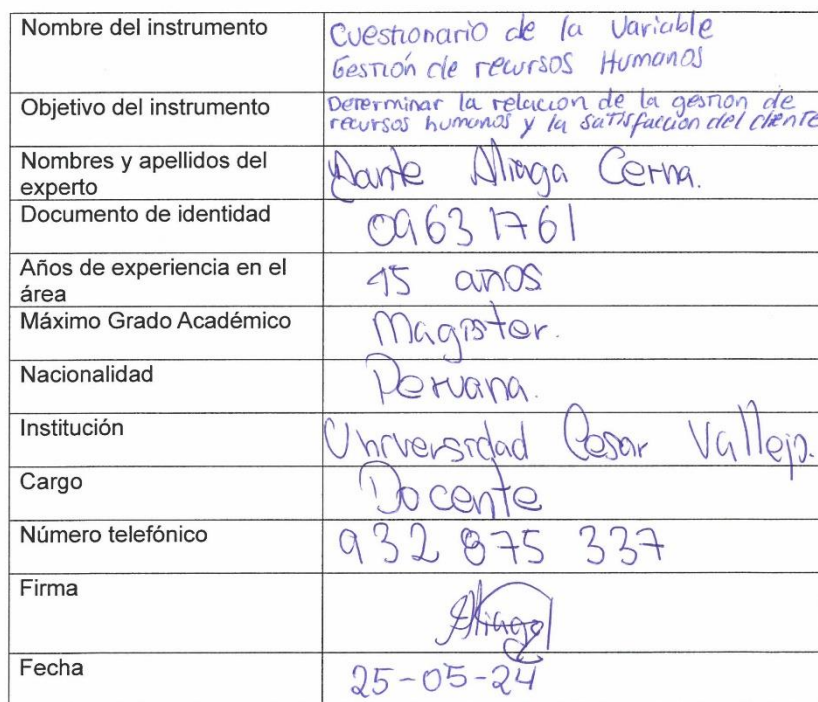 Nombre del instrumento
Cuestionario de la Variable
Gestión de recursos Humanos
Objetivo del instrumento
Determinar la relacion de la gestion de
recursos humanos y la satisfaccion del cliente
Nombres y apellidos del
experto
Dante Aliaga Cerna.
Documento de identidad
09631761
Años de experiencia en el
área
15 años
Máximo Grado Académico
Magister.
Nacionalidad
Peruana.
Institución
Universidad Cesar Vallejo.
Cargo
Docente
Número telefónico
932 875 337
Firma
Aliaga
Fecha
25-05-24